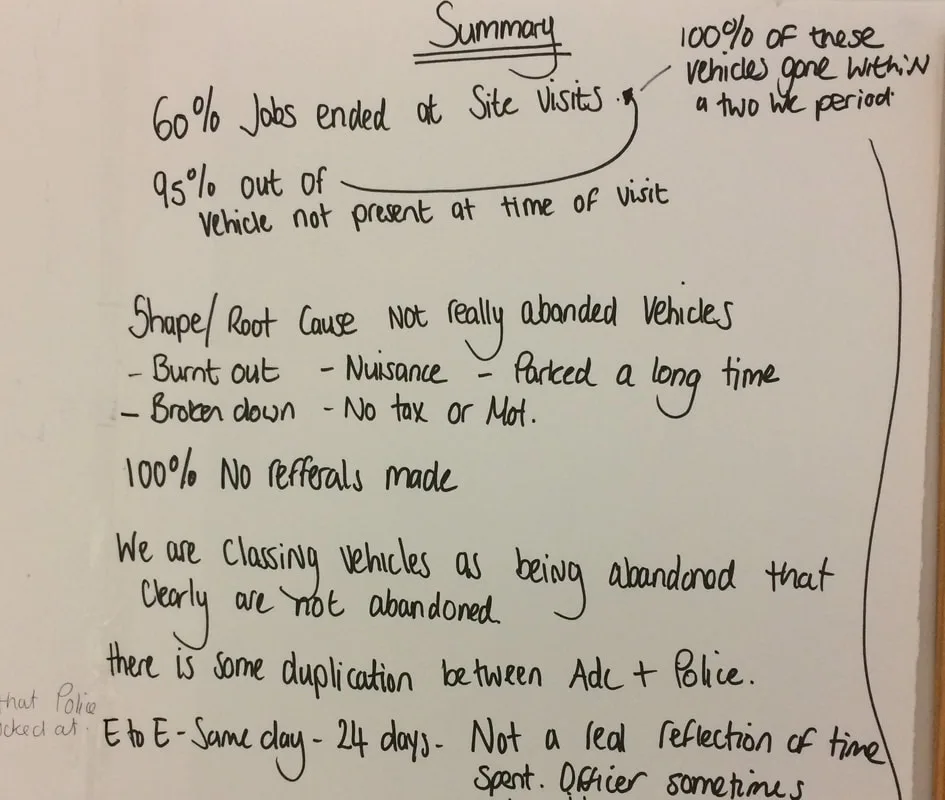 Summary
100% of these
vehicles gone within
a two wk period.
60% Jobs ended at Site visits.
95% out of
vehicle not present at time of visit
Shape/Root Cause Not really abanded Vehicles
- Burnt out - Nuisance - Parked a long time
- Broken down - No tax or Mot.
100% No refferals made
We are classing vehicles as being abandoned that
Clearly are not abandoned.
there is some duplication between Adc + Police.
that Police
cked at.
E to E - Same day - 24 days - Not a real reflection of time
Spent. Officer sometimes